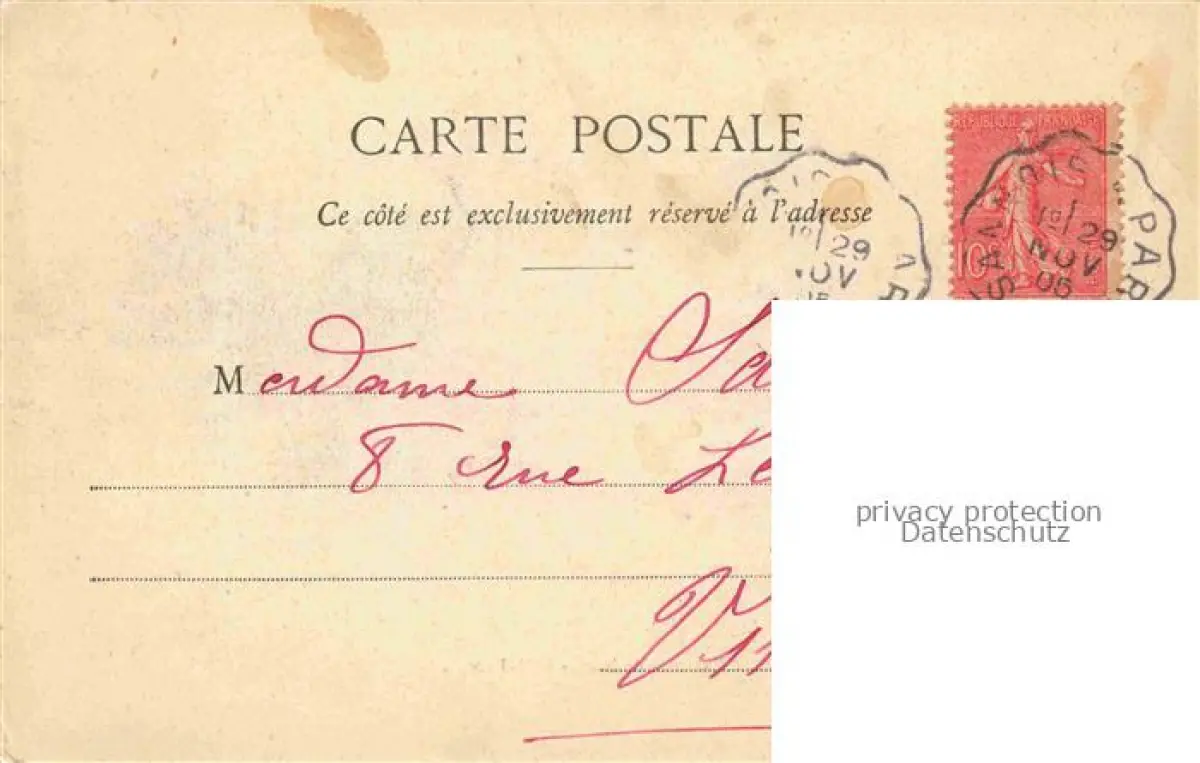 CARTE POSTALE
Ce côté est exclusivement réservé à l'adresse
RÉPUBLIQUE FRANÇAISE
10c
29
NOV
05
PAR
29
OV
Madame
8 rue
privacy protection
Datenschutz